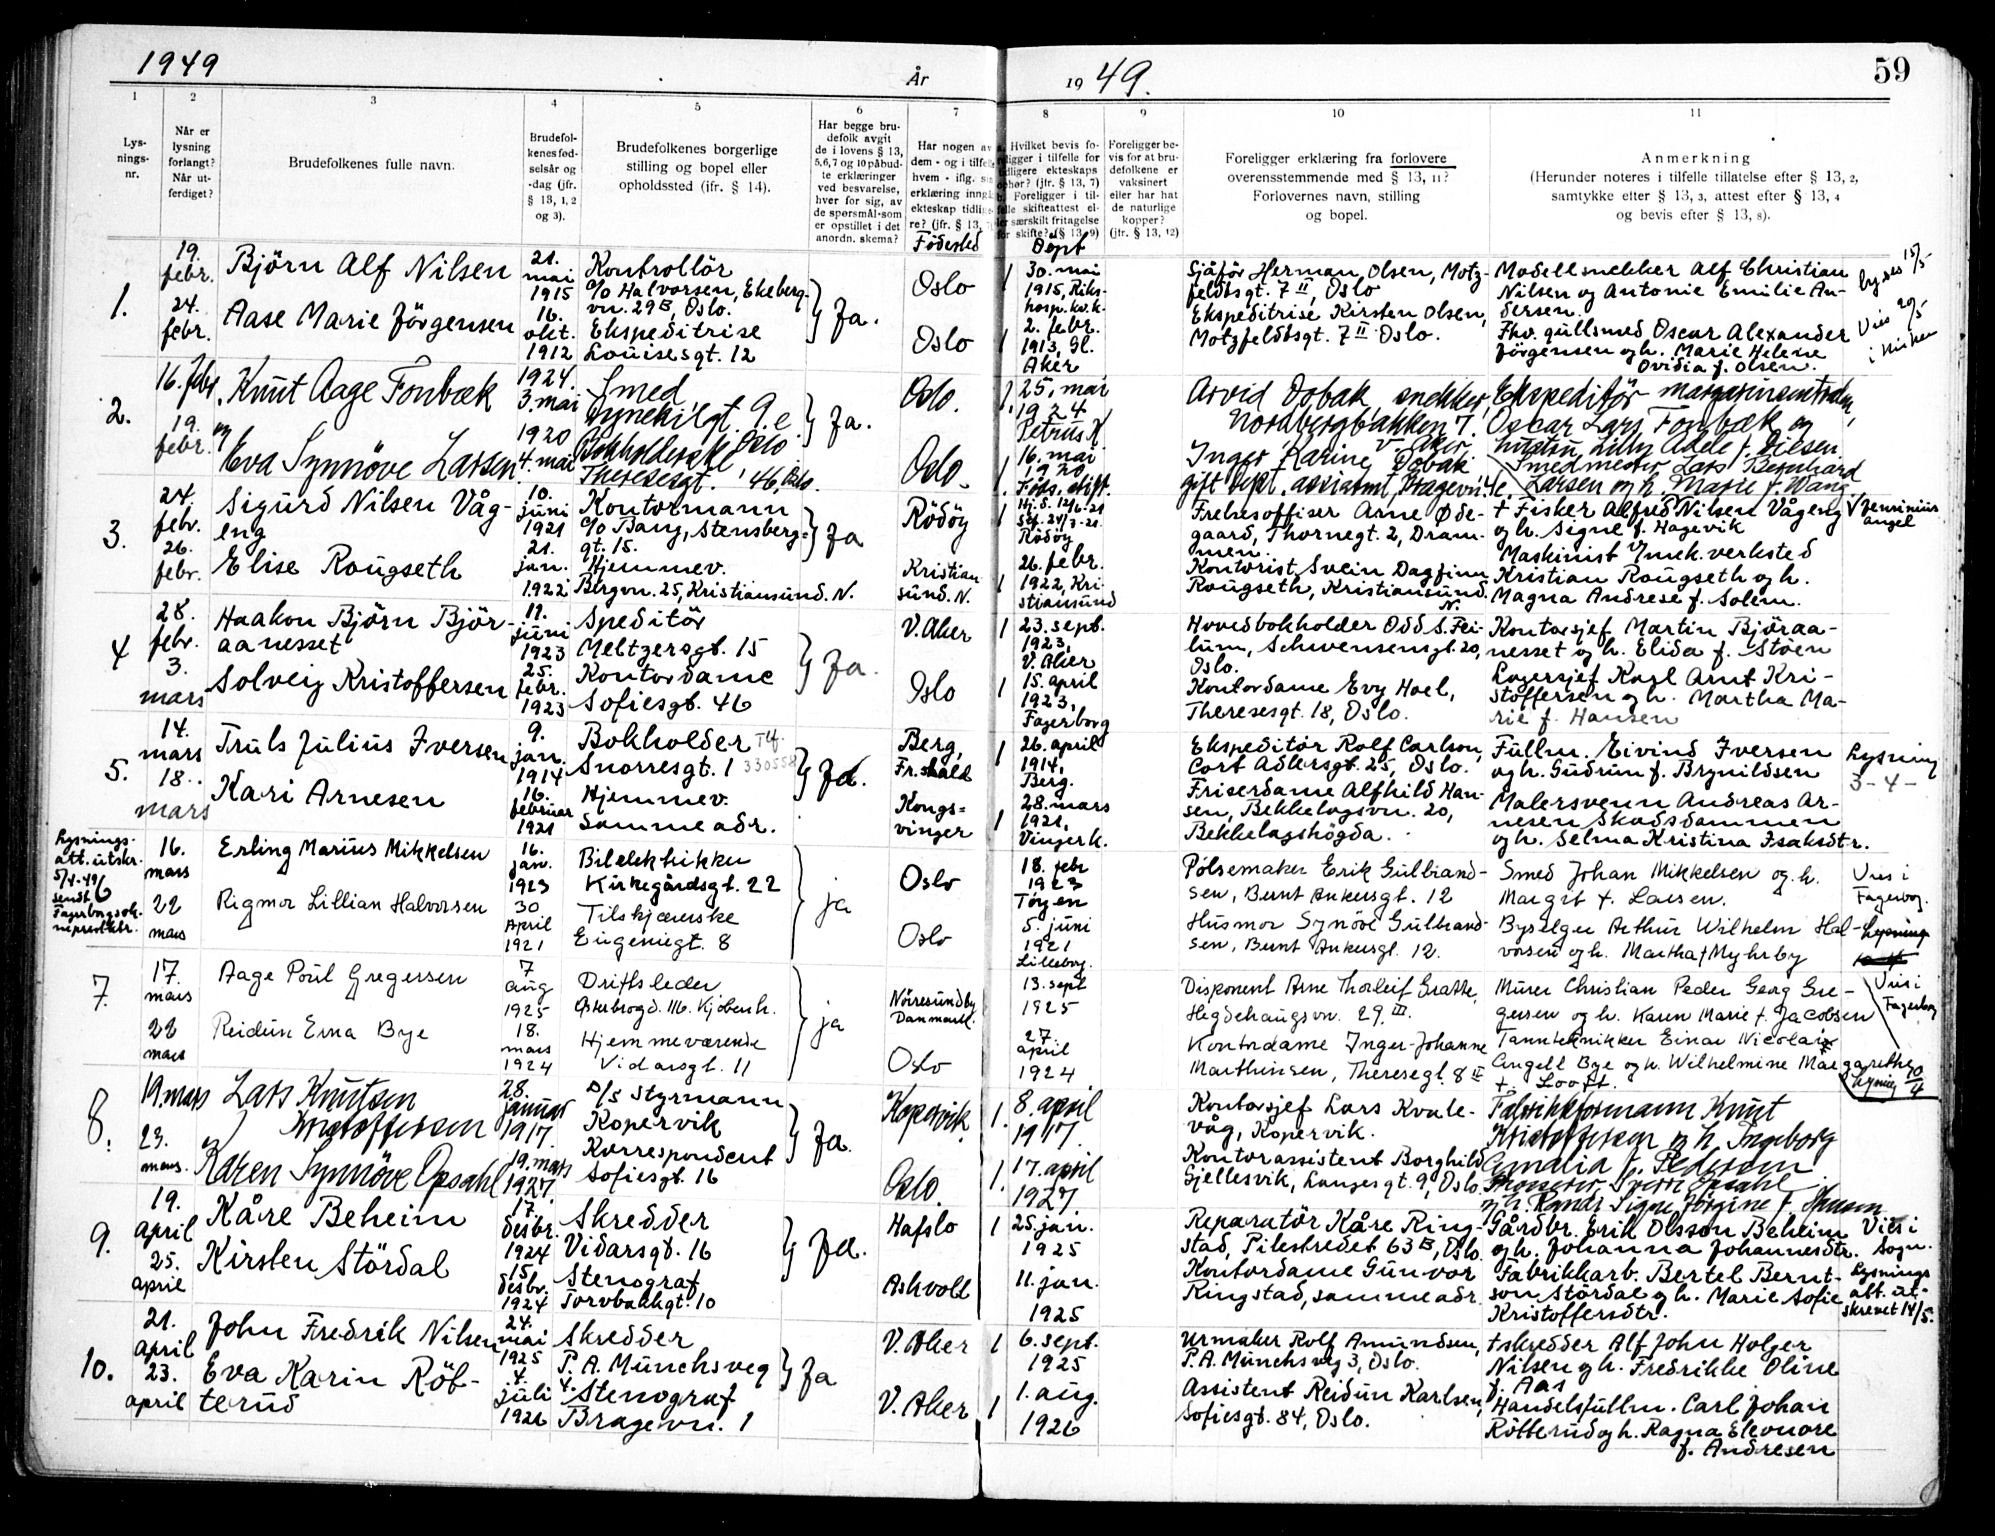 1949
År
1949.
59
1
2
3
4
5
6
7
8
9
10
11
Lys-
nings-
nr.
Når er
lysning
forlangt?
Når ut-
ferdiget?
Brudefolkenes fulle navn.
Brudefol-
kenes fød-
selsår og
-dag (jfr.
§ 13, 1, 2
og 3).
Brudefolkenes borgerlige
stilling og bopel eller
opholdssted (ifr. § 14).
Har begge bru-
defolk avgit
de i lovens § 13,
5,6,7 og 10 påbud-
te erklæringer
ved besvarelse,
hver for sig, av
de spørsmål som
er opstillet i det
anordn. skema?
Har nogen av
dem - og i tilfelle
hvem - iflg.
erklæring inngå
ekteskap tidlige-
re? (jfr. § 13,
Födested
Hvilket bevis fo-
religger i tilfelle for
tidligere ekteskaps
ophør? (jfr. § 13, 7)
Foreligger i til-
felle skifteattest el-
ler særskilt fritagelse
for skifte? (§ 13, 9)
Döpt
Foreligger be-
vis for at bru-
defolkene er
vaksinert
eller har hat
de naturlige
kopper?
(jfr. § 13, 12)
Foreligger erklæring fra forlovere
overensstemmende med § 13, 11?
Forlovernes navn, stilling
og bopel.
Anmerkning
(Herunder noteres i tilfelle tillatelse efter § 13, 2,
samtykke efter § 13, 3, attest efter § 13, 4
og bevis efter § 13, 8).
1.
19.
febr.
24.
febr.
Björn Alf Nilsen
Aase Marie Jörgensen
21.
mai
1915
16.
okt.
1912
Kontrollör
c/o Halvorsen, Ekeberg-
vn. 29B, Oslo.
Ekspeditrise
Louisesgt. 12
Ja.
Oslo
Oslo
30. mai
1915, Riks-
hosp. kv.k.
2. febr.
1913, Gl.
Aker
Sjåför Herman Olsen, Motz-
feldtsgt. 7 II, Oslo
Ekspeditrise Kirsten Olsen,
Motzfeldtsgt. 7 II Oslo.
Modellsnekker Alf Christian
Nilsen og Antonie Emilie An-
dersen.
Fhv. gullsmed Oscar Alexander
Jörgensen og h. Marie Helene
Ovidia f. Olsen.
15/5
2.
16. febr
19.
febr.
Knut Aage Fonbæk
og
Eva Synnöve Larsen
1924.
3. mai
1920
4. mai
Smed
Bokholderske
Theresesgt. 46, Oslo.
Ja.
Oslo.
Oslo.
25. mai
1924
Petrus K
16. mai
1920
Arvid Dobak snekker,
Nordbergbakken 7.
V. Aker.
Inger Karine Dobak
Ekspeditör margarinsentralen,
Oscar Lars Fonbæk og
hustru Lilly Adele f. Nilsen.
Smedmester Lars Bernhard
Larsen og h. Marie f. Wang
3.
24.
febr.
26.
febr.
Sigurd Nilsen Våg-
eng
Elise Rougseth
10.
juni
1921
21.
jan.
1922
Kontormann
c/o Bang, Stensberg-
gt. 15.
Hjemmev.
Bergvn. 25, Kristiansund. N.
Ja
Rödöy
Kristian
sund. N.
Rödöy
26. febr.
1922, Kri-
stiansund
Frelsesoffiser Arne Øde-
gaard, Thornegt. 2, Dram-
men.
Kontorist Svein Dagfinn
Rougseth, Kristiansund.
N.
+ Fisker Alfred Nilsen Vågeng
og h. Signe f. Hagevik
Maskinist v/mek. verksted
Kristian Rougseth og h.
Magna Andrese f. Solem.
4
28.
febr.
3.
mars
Haakon Björn Björ-
aanesset
Solveig Kristoffersen
11.
juni
1923
25.
febr.
1923
Speditör
Meltzersgt. 15
Kontordame
Sofiesgt. 46
Ja.
V. Aker
Oslo
23. sept.
1923,
V. Aker
15. april
1923,
Fagerborg
Hovedbokholder Odd S. Fei-
lum, Schwensensgt. 20,
Oslo.
Kontordame Evy Hoel,
Theresesgt. 18, Oslo.
Kontorsjef Martin Björaa-
nesset og h. Elida f. Stöen
Lagersjef Karl Arnt Kri-
stoffersen og h. Martha Ma-
rie f. Hansen
5.
14.
mars
18.
mars
Truls Julius Iversen
Kari Arnesen
9.
jan.
1914
16.
februar
1921
Bokholder Tlf.
Snorresgt. 1 330558
Hjemmev.
Samme adr.
Ja.
Berg,
Fr.shald
Kongs-
vinger
26. april
1914,
Berg.
28. mars
1921,
Vinger k.
Ekspeditör Rolf Carlson,
Cort Adlersgt. 25, Oslo.
Friserdame Alfhild Han-
sen, Bekkelagsvn. 20,
Bekkelagshögda.
Fullm. Eivind Iversen
og h. Gudrun f. Brynildsen
Malersvenn Andreas Ar-
nesen Skodsdammen
og h. Selma Kristina Isaksdtr.
Lysning
3-4-
Lysnings-
att. utskr.
5/4-49
sendt
16.
mars
22
mars
Erling Marius Mikkelsen
Rigmor Lillian Halvorsen
16.
jan.
1923
30
April
1921
Bilelektrikker
Kirkegårdsgt. 22
Tilskjærerske
Eugeniegt. 8
ja
Oslo
Oslo
18. febr
1923
Töyen
5. juni
1921
Lilleborg.
Pølsemaker Erik Gulbrand-
sen, Bernt Ankersgt. 12
Husmor Synöve Gulbrand-
sen, Bernt Ankersgt. 12.
Smed Johan Mikkelsen og h.
Margit f. Larsen.
Byselger Arthur Wilhelm Hal-
vorsen og h. Martha f Myhrby
Vies i
Fagerbog.
Lysning
7.
17.
mars
22
mars
Aage Poul Gregersen
Reidun Erna Bye
7
aug
1925
18.
mars
1924
Driftsleder
Østerbrogd. 116. Kjöbenh.
Hjemmeværende
Vidarsgt. 11
ja
Nörresundby
Danmark.
Oslo
13. sept
1925
27.
april
1924
Disponent Arne Thorleif Gratte,
Hegdehaugsvn. 29, III.
Kontordame Inger-Johanne
Marthinsen, Theresegt. 8 II
Murer Christian Peder Georg Gre-
gersen og h. Karen Marie f. Jacobsen
Tanntekniker Einar Nicolai
Angell Bye og h. Wilhelmine Margarethe
f. Looft.
Vies i
Fagerborg
Lysning 10/4
8.
19. mars
23.
mars.
Lars Knutsen
Kristoffersen
og
Karen Synnöve Opsahl
28.
januar
1917.
19. mars
1927.
D/S Styrmann
Kopervik
Korrespondent
Sofiesgt. 16
Ja.
Kopervik.
Oslo.
8. april
1917.
17. april
1927
Kontorsjef Lars Kvale-
våg, Kopervik.
Kontorassistent Borghild
Gjellesvik, Langesgt. 9, Oslo.
Fabrikkformann Knut
Kristoffersen og h. Ingeborg
Amalia f. Pedersen
og h. Randi Signe Jörgine f. Hansen
9.
19.
april
25.
april
Kåre Beheim
Kirsten Stördal
17.
desbr.
1924
15
desbr.
1924
Skredder
Vidarsgt. 16
Stenograf
Torvbakkgt. 10
Ja.
Hafslo
Askvoll
25. jan.
1925
11. jan.
1925
Reparatör Kåre Ring-
stad, Pilestredet 63B, Oslo.
Kontordame Gunvor
Ringstad, samme adr.
Gårdbr. Erik Olsson Beheim
og h. Johanna Johannesdtr.
Fabrikkarb. Bertel Bernt-
son Stördal og h. Marie Sofie
Kristoffersdtr.
Vies i
Sogn.
Lysnings
att. ut-
skrevet 14/5.
10.
21.
april
23.
april
John Fredrik Nilsen
Eva Karin Röt-
terud
24.
mai
1925
4.
juli
1926
Skredder
P. A. Munchs veg
4.
Stenograf
Bragevn. 1
Ja
V. Aker
V. Aker
6. sept.
1925
1. aug.
1926
Urmaker Rolf Amundsen,
P. A. Munchs veg 3, Oslo.
Assistent Reidun Karlsen,
Sofiesgt. 84, Oslo.
+ skredder Alf John Holger
Nilsen og h. Fredrikke Oline
f. Aas
Handelsfullm. Carl Johan
Rötterud og h. Ragna Eleonore
f. Andresen